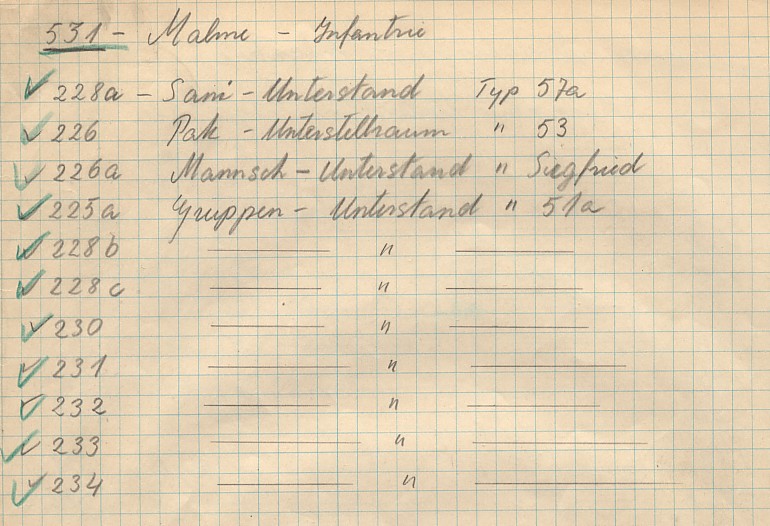 531 - Malme - Infantrie
✓ 228a - Sani - Unterstand Typ 57a
✓ 226 Pak - Unterstellraum " 53
✓ 226a Mannsch - Unterstand " Siegfried
✓ 225a Gruppen - Unterstand " 51a
✓ 228b —— " ——
✓ 228c —— " ——
✓ 230 —— " ——
✓ 231 —— " ——
✓ 232 —— " ——
✓ 233 —— " ——
✓ 234 —— " ——